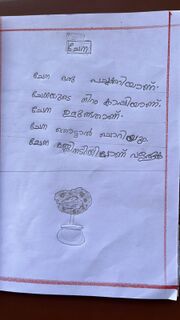 ചേന
ചേന ഒരു പച്ചക്കറിയാണ്.
ചേനയുടെ നിറം കാപ്പിയാണ്.
ചേന ഉരുണ്ടതാണ്.
ചേന തൊട്ടാൽ ചൊറിയും
ചേന മണ്ണിനടിയിലാണ് വളരുന്നത്